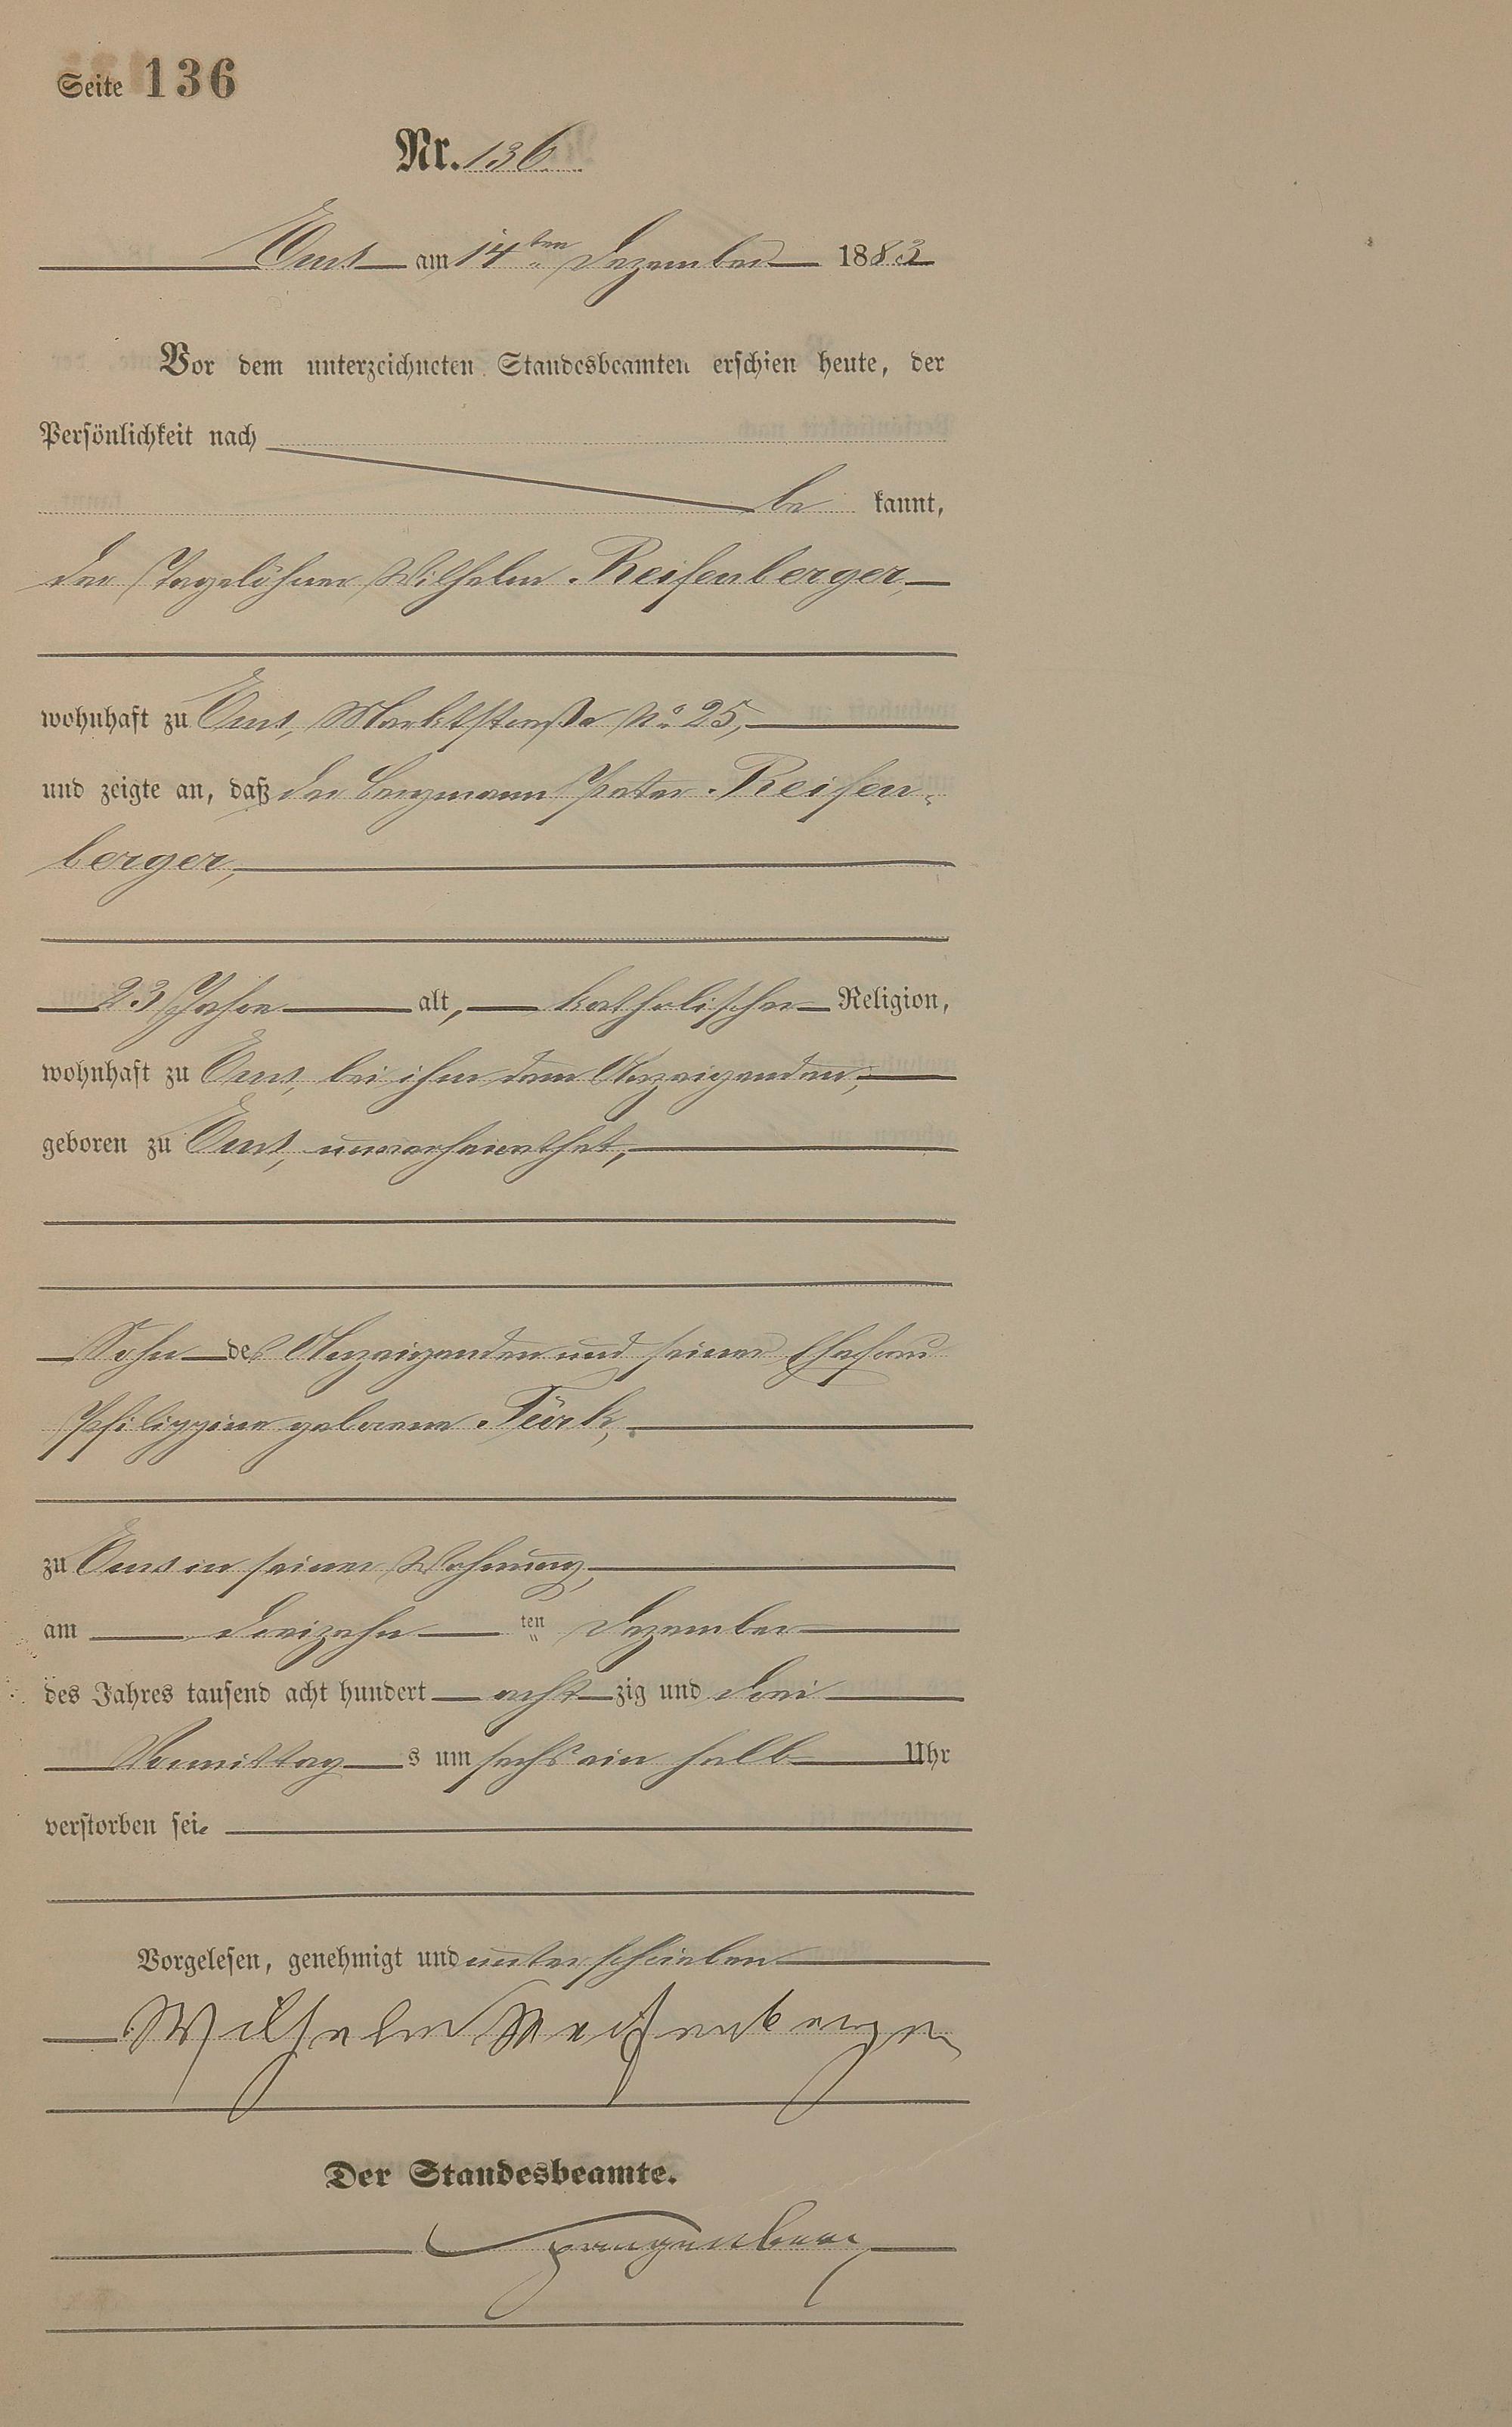 Seite 136
Nr. 136
Ems am 14ten Dezember 1883
Vor dem unterzeichneten Standesbeamten erschien heute, der
Persönlichkeit nach
be kannt,
der Tagelöhner Wilhelm Reifenberger,
wohnhaft zu Ems, Marktstraße No 25,
und zeigte an, daß der Bergmann Peter Reifen-
berger,
23 Jahre alt, katholischer Religion,
wohnhaft zu Ems, bei ihm dem Anzeigenden,
geboren zu Ems, unverheirathet,
Sohn des Anzeigenden und seiner Ehefrau
Philippine geborene Türk,
zu Ems in seiner Wohnung,
am dreizehn ten Dezember
des Jahres tausend acht hundert acht zig und drei
Vormittag s um sechs ein halb Uhr
verstorben sei.
Vorgelesen, genehmigt und unterschrieben
Wilhelm Reifenberger
Der Standesbeamte.